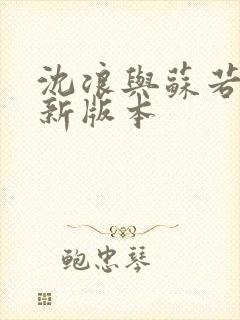 沈浪與蘇若
新版本
鲍忠琴